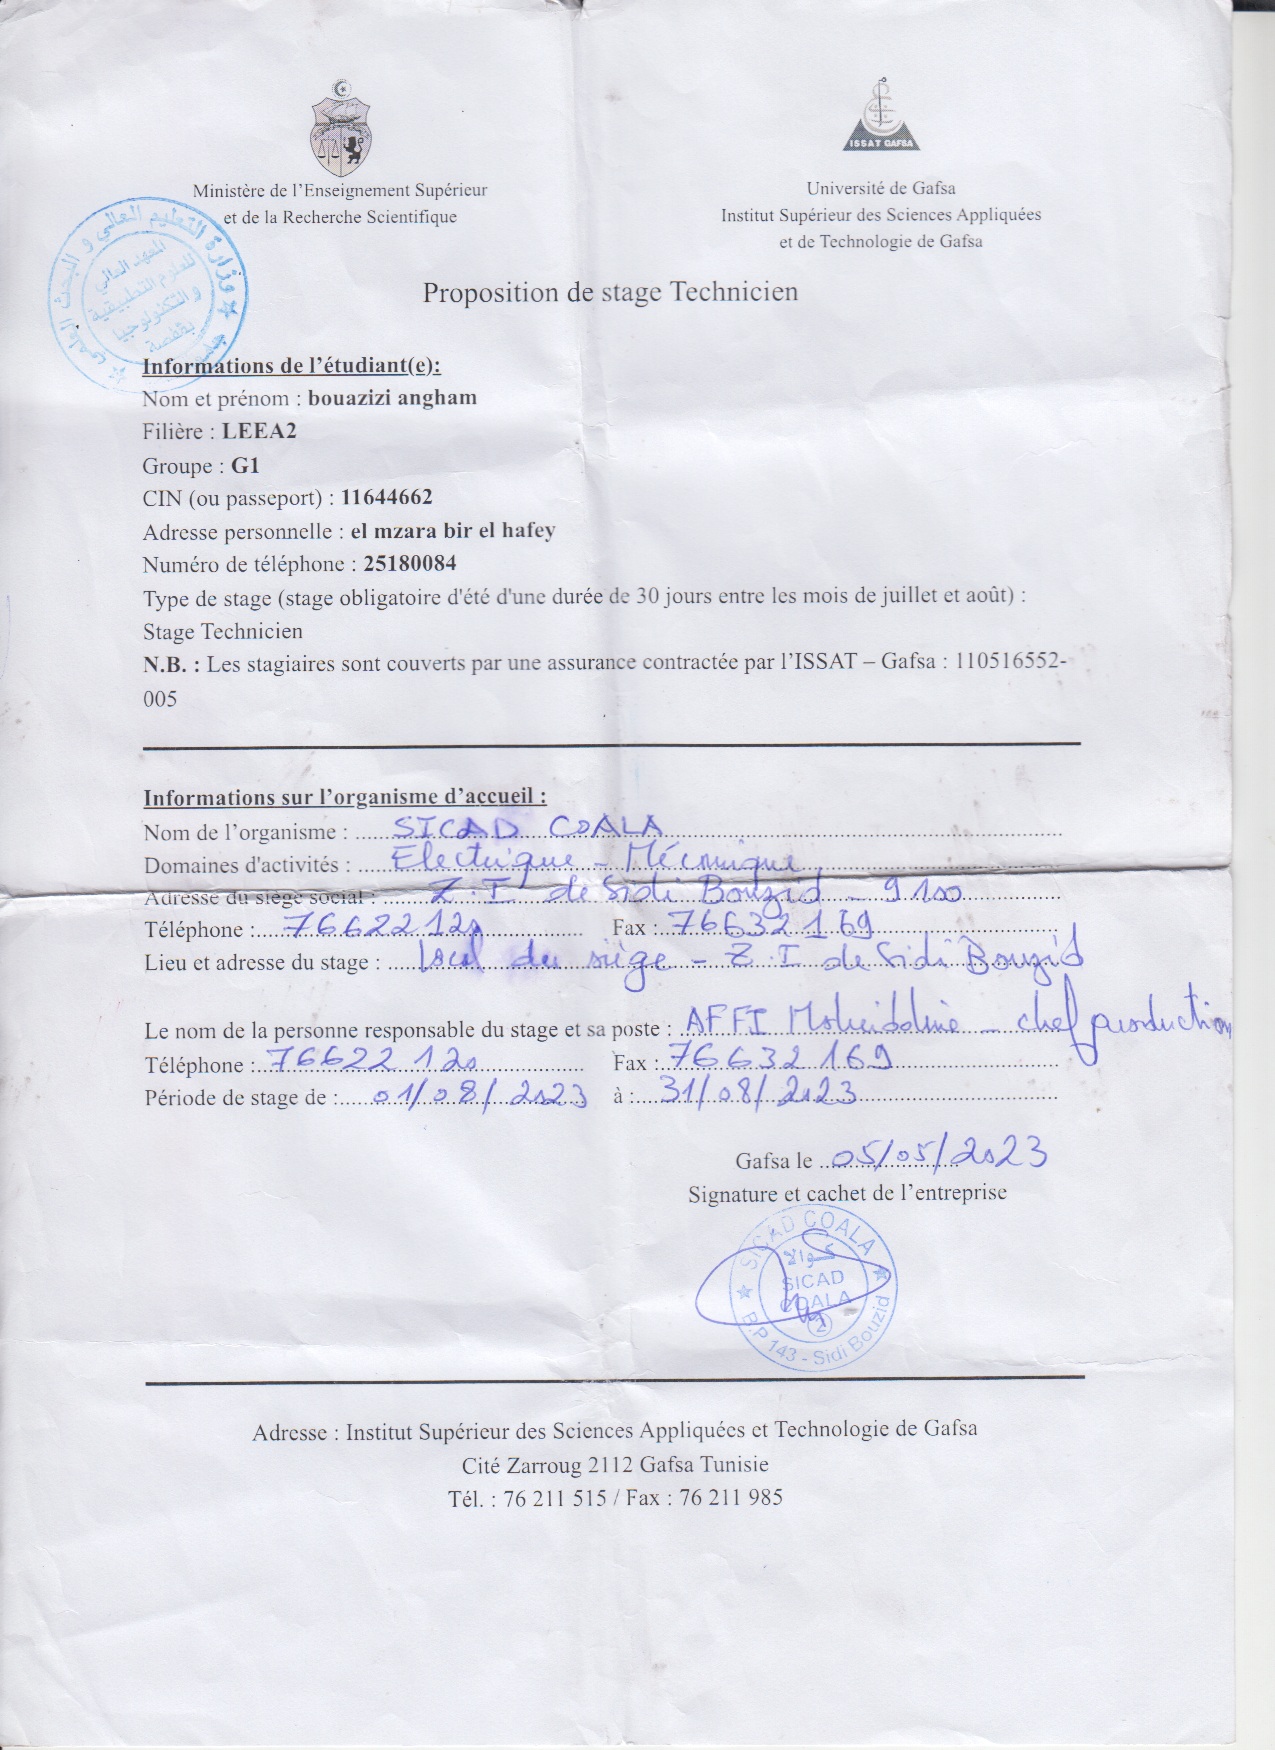 ISSAT GAFSA
Ministère de l'Enseignement Supérieur
et de la Recherche Scientifique
Université de Gafsa
Institut Supérieur des Sciences Appliquées
et de Technologie de Gafsa
وزارة التعليم العالي و البحث العلمي
المعهد العالي
للعلوم التطبيقية
و التكنولوجيا
بقفصة
Proposition de stage Technicien
Informations de l'étudiant(e):
Nom et prénom : bouazizi angham
Filière : LEEA2
Groupe : G1
CIN (ou passeport) : 11644662
Adresse personnelle : el mzara bir el hafey
Numéro de téléphone : 25180084
Type de stage (stage obligatoire d'été d'une durée de 30 jours entre les mois de juillet et août) :
Stage Technicien
N.B. : Les stagiaires sont couverts par une assurance contractée par l'ISSAT – Gafsa : 110516552-
005
Informations sur l'organisme d'accueil :
Nom de l'organisme : SICAD COALA
Domaines d'activités : Electrique - Mécanique
Adresse du siège social : Z.I de Sidi Bouzid - 9100
Téléphone : 76622120 Fax : 76632169
Lieu et adresse du stage : local du siège - Z.I de Sidi Bouzid
Le nom de la personne responsable du stage et sa poste : AFFI - chef production
Téléphone : 76622 120 Fax : 76632 169
Période de stage de : 01/08/2023 à : 31/08/2023
Gafsa le 05/05/2023
Signature et cachet de l'entreprise
SICAD COALA
كوالا
SICAD
COALA
2
B.P 143 - Sidi Bouzid
Adresse : Institut Supérieur des Sciences Appliquées et Technologie de Gafsa
Cité Zarroug 2112 Gafsa Tunisie
Tél. : 76 211 515 / Fax : 76 211 985